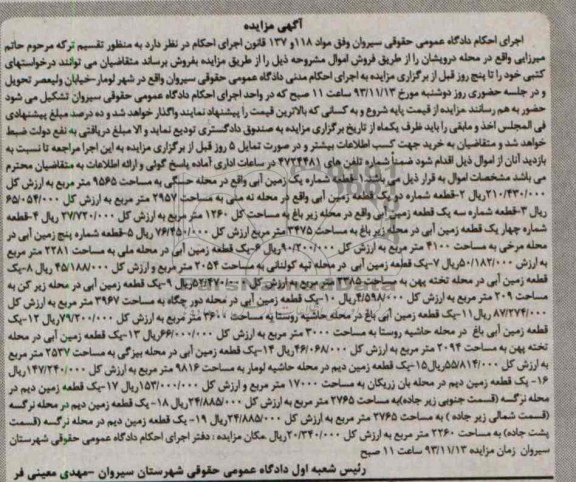 آگهی مزایده
اجرای احکام دادگاه عمومی حقوقی سیروان وفق مواد ۱۱۸و ۱۳۷ قانون اجرای احکام در نظر دارد به منظور تقسیم ترکه مرحوم حاتم
میرزایی واقع در محله درویشان را از طریق فروش اموال مشروحه ذیل را از طریق مزایده بفروش برساند متقاضیان می توانند درخواستهای
کتبی خود را تا پنج روز قبل از برگزاری مزایده به اجرای احکام مدنی دادگاه عمومی حقوقی سیروان واقع در شهر لومار-خیابان ولیعصر تحویل
و در جلسه حضوری روز دوشنبه مورخ ۹۳/۱۱/۱۳ ساعت ۱۱ صبح که در واحد اجرای احکام دادگاه عمومی حقوقی سیروان تشکیل می شود
حضور به هم رسانند مزایده از قیمت پایه شروع و به کسانی که بالاترین قیمت را پیشنهاد نمایند واگذار خواهد شد و ده درصد مبلغ پیشنهادی
فی المجلس اخذ و مابقی را باید ظرف یکماه از تاریخ برگزاری مزایده به صندوق دادگستری تودیع نماید و الا مبلغ دریافتی به نفع دولت ضبط
خواهد شد و متقاضیان به خرید جهت کسب اطلاعات بیشتر و در صورت تمایل ۵ روز قبل از برگزاری مزایده به این اجرا مراجعه تا نسبت به
بازدید آنان از اموال ذیل اقدام شود ضمنا شماره تلفن های ۴۷۲۲۴۸۱ در ساعات اداری آماده پاسخ گوئی و ارائه اطلاعات به متقاضیان محترم
می باشد مشخصات اموال به قرار ذیل می باشد ۱-قطعه شماره یک زمین آبی واقع در محله حسگی به مساحت ۹۵۶۵ متر مربع به ارزش کل
۲۱۰/۴۳۰/۰۰۰ریال ۲-قطعه شماره دو یک قطعه زمین آبی واقع در محله نه ملی به مساحت ۲۹۵۷ متر مربع به ارزش کل ۶۵/۰۵۴/۰۰۰
ریال ۳-قطعه شماره سه یک قطعه زمین آبی واقع در محله زیر باغ به مساحت کل ۱۲۶۰ متر مربع به ارزش کل ۲۷/۷۲۰/۰۰۰ ریال ۴-قطعه
شماره چهار یک قطعه زمین آبی در محله زیر باغ به مساحت ۳۴۷۵ متر مربع به ارزش کل ۷۶/۴۵۰/۰۰۰ ریال ۵-قطعه شماره پنج زمین آبی در
محله مرخی به مساحت ۴۱۰۰ متر مربع به ارزش کل ۹۰/۲۰۰/۰۰۰ریال ۶-یک قطعه زمین آبی در محله ملی به مساحت ۲۲۸۱ متر مربع
به ارزش ۵۰/۱۸۲/۰۰۰ریال ۷-یک قطعه زمین آبی در محله تپه کولنانی به مساحت ۲۰۵۴ متر مربع و ارزش کل ۴۵/۱۸۸/۰۰۰ ریال ۸-یک
قطعه زمین آبی در محله تخته پهن به مساحت ۲۳۸۵ متر مربع به ارزش کل ۵۲/۴۷۰/۰۰۰ریال ۹-یک قطعه زمین آبی در محله زیر کن به
مساحت ۲۰۹ متر مربع به ارزش کل ۴/۵۹۸/۰۰۰ریال ۱۰-یک قطعه زمین آبی در محله دور چگاه به مساحت ۳۹۶۷ متر مربع به ارزش کل
۸۷/۲۷۴/۰۰۰ ریال۱۱-یک قطعه زمین آبی باغ در محله حاشیه روستا به مساحت ۳۶۰۰ متر مربع به ارزش کل ۷۹/۲۰۰/۰۰۰ریال ۱۲-یک
قطعه زمین آبی باغ در محله حاشیه روستا به مساحت ۳۰۰۰ متر مربع به ارزش کل ۶۶/۰۰۰/۰۰۰ریال ۱۳-یک قطعه زمین آبی در محله
تخته پهن به مساحت ۲۰۹۴ متر مربع به ارزش کل ۴۶/۰۶۸/۰۰۰ ریال ۱۴-یک قطعه زمین آبی در محله بیزگی به مساحت ۲۵۳۷ متر مربع
به ارزش کل ۵۵/۸۱۴/۰۰۰ریال۱۵-یک قطعه زمین دیم در محله حاشیه لومار به مساحت ۹۸۱۶ متر مربع به ارزش کل ۱۴۷/۲۴۰/۰۰۰ریال
۱۶- یک قطعه زمین دیم در محله بان زریکان به مساحت ۱۷۰۰۰ متر مربع و ارزش کل ۱۵۳/۰۰۰/۰۰۰ریال ۱۷-یک قطعه زمین دیم در
محله نرگسه (قسمت جنوبی زیر جاده)به مساحت ۲۷۶۵ متر مربع به ارزش کل ۲۴/۸۸۵/۰۰۰ریال ۱۸- یک قطعه زمین دیم در محله نرگسه
(قسمت شمالی زیر جاده ) به مساحت ۲۷۶۵ متر مربع به ارزش کل ۲۴/۸۸۵/۰۰۰ریال ۱۹- یک قطعه زمین دیم در محله نرگسه (قسمت
پشت جاده) به مساحت ۲۲۶۰ متر مربع به ارزش کل ۲۰/۳۴۰/۰۰۰ریال .مکان مزایده : دفتر اجرای احکام دادگاه عمومی حقوقی شهرستان
سیروان زمان مزایده ۹۳/۱۱/۱۳ ساعت ۱۱ صبح
رئیس شعبه اول دادگاه عمومی حقوقی شهرستان سیروان -مهدی معینی فر